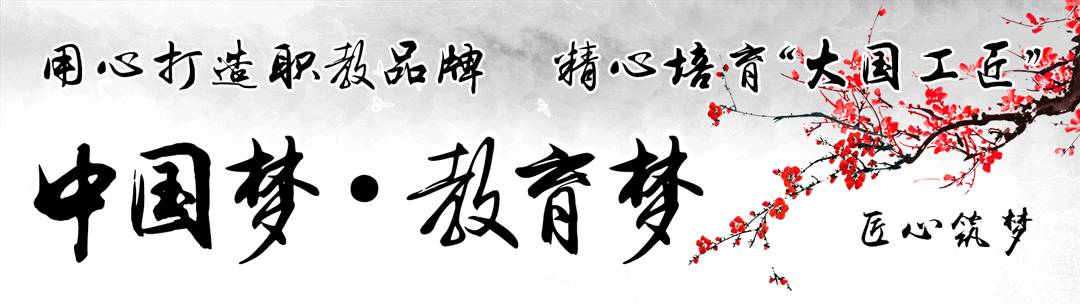 用心打造职教品牌 精心培育“大国工匠”
中国梦·教育梦
匠心筑梦